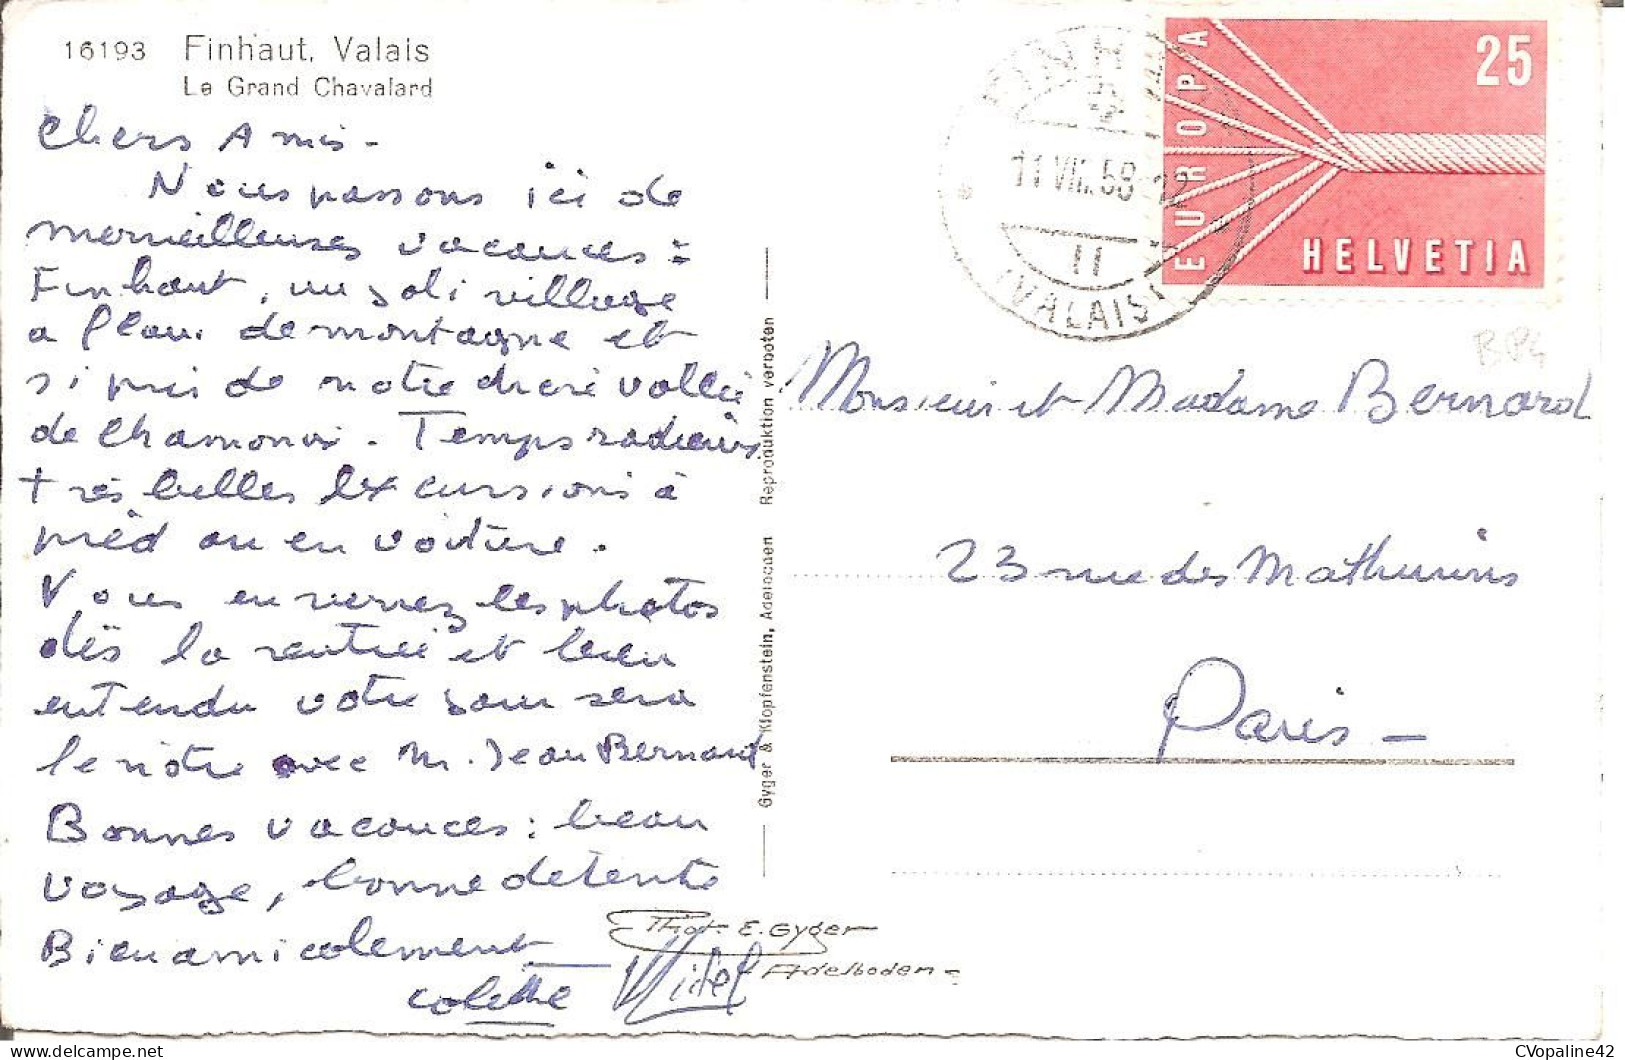 16193 Finhaut, Valais
Le Grand Chavalard
Chers Amis -
Nous passons ici de
merveilleuses vacances :
Finhaut, un joli village
a flanc de montagne et
si près de notre chère vallée
de Chamonix. Temps radieux
très belles excursions à
pied ou en voiture.
Vous en verrez les photos
dès la rentrée et bien
entendu votre jour sera
le nôtre avec M. Jean Bernard
Bonnes vacances : beau
voyage, bonne détente
Bien amicalement
Colette
Phot. E. Gyger
Adelboden
Gyger & Klopfenstein, Adelboden Reproduktion verboten
11 VIII. 58-12
II
(VALAIS)
EUROPA
25
HELVETIA
BP4
Monsieur et Madame Bernard
23 rue des Mathurins
Paris -
CVopaline42